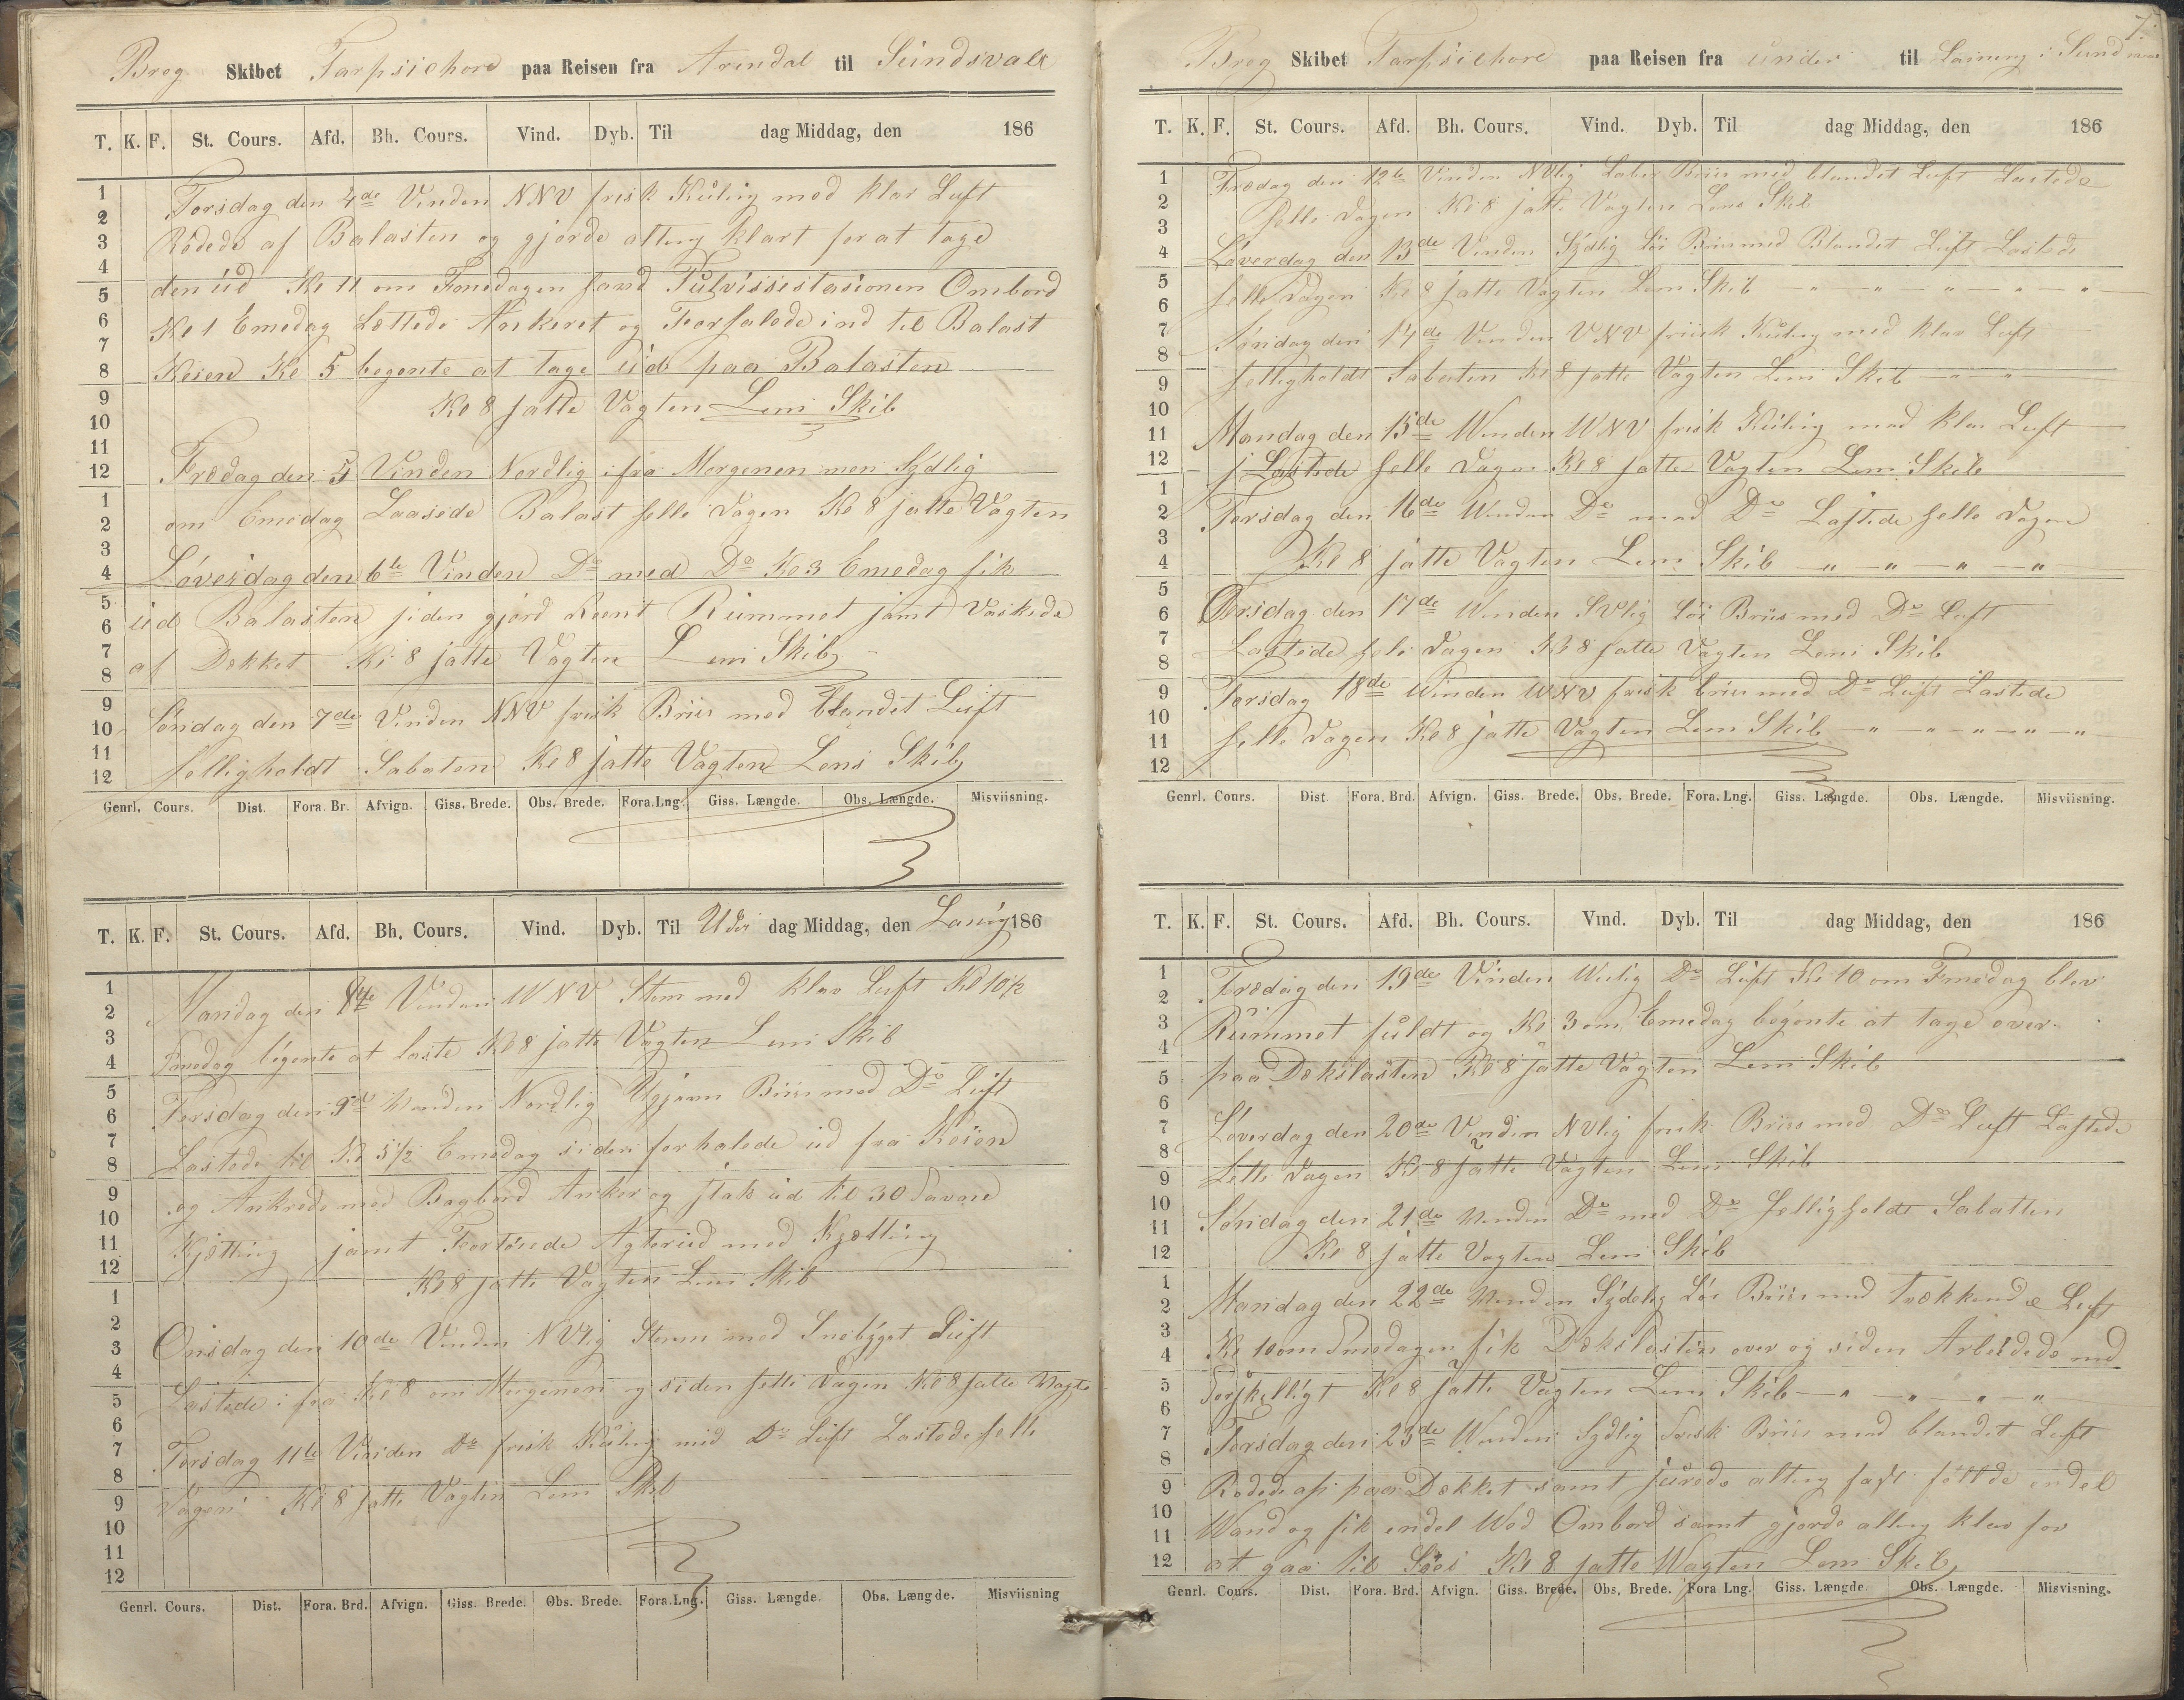 Breg Skibet Tarpsichore paa Reisen fra Arendal til Sündsvall
T. K. F. St. Cours. Afd. Bh. Cours. Vind. Dyb. Til dag Middag, den 186
Torsdag den 4de Vinden NNV frisk Küling med klar Luft
Rødede af Balasten og gjorde alting klart for at tage
den üd Kl 11 om Formedagen fand Ombord
Kl 1 Emedag Lættede Ankeret og Forhalede ind til Balast
Keien Kl 5 begente at tage üd paa Balasten
Kl 8 satte Vagten Lens Skib
Fredag den 5 Vinden Nordlig ifra Morgenen men Sydlig
om Emedag Laasede Balast helle Dagen Kl 8 satte Vagten
Løverdag den 6te Vinden Do med Do Kl 3 Emedag fik
üd Balasten siden gjord Reent Rümmet samt Vaskede
af Dekket Kl 8 satte Vagten Lens Skib
Søndag den 7de Vinden NNV frisk Briis med blandet Lüft
helligholdt Sabaten Kl 8 satte Vagten Lens Skib
Genrl. Cours. Dist. Fora. Br. Afvign. Giss. Brede. Obs. Brede. Fora. Lng. Giss. Længde. Obs. Længde. Misviisning.
T. K. F. St. Cours. Afd. Bh. Cours. Vind. Dyb. Til dag Middag, den 186
Mandag den 8de Vinden WNV Stom med klar Luft Kl 10½
Fmedag begente at laste Kl 8 satte Vagten Lens Skib
Torsdag den 9de Winden Nordlig Briis med Do Lüft
Lastede til Kl 5½ Emedag siden forhalede üd fra Keien
og Ankrede med Bagbord Anker og stak üd til 30 Favne
Kjætting samt Fortøiede Agterüd med Kjætting
Kl 8 satte Vagten Lens Skib
Onsdag den 10de Vinden NVlig Storm med Snebyget Lüft
Lastede i fra Kl 8 om Morgenen og siden helle Dagen Kl 8 satte Vagte
Torsdag 11te Vinden Do frisk Küling med Do Lüft Lastede helle
Dagen Kl 8 satte Vagten Lens Skib
Genrl. Cours. Dist. Fora. Brd. Afvign. Giss. Brede. Obs. Brede. Fora. Lng. Giss. Længde. Obs. Længde. Misviisning
7.
Breg Skibet Tarpsichore paa Reisen fra under til Lasning i Sundsval
T. K. F. St. Cours. Afd. Bh. Cours. Vind. Dyb. Til dag Middag, den 186
Fredag den 12te Vinden NVlig Laber Briis med blandet Luft Lastede
helle Dagen Kl 8 satte Vagten Lens Skib
Løverdag den 13de Vinden Sydlig Løi Briis med Blandet Lüft Lastede
helle Dagen Kl 8 satte Vagten Lens Skib — " — " — " — " — "
Søndag den 14de Vinden VNV friisk Küling med klar Lüft
helligholdt Sabaten Kl 8 satte Vagten Lens Skib — " — "
Mandag den 15de Winden WNV frisk Küling med klar Luft
Lastede helle Dagen Kl 8 satte Vagten Lens Skib
Torsdag den 16de Winden Do med Do Lastede helle Dagen
Kl 8 satte Vagten Lens Skib — " — " — " — "
Onsdag den 17de Winden SVlig Løi Briis med Do Luft
Lastede hele Dagen Kl 8 satte Vagten Lens Skib
Torsdag 18de Winden WNV frisk briis med Do Lüft Lastede
helle Dagen Kl 8 satte Vagten Lens Skib — " — " — " — " — "
Genrl. Cours. Dist Fora. Brd. Afvign. Giss. Brede. Obs. Brede. Fora. Lng. Giss. Længde. Obs. Længde. Misviisning.
T. K. F. St. Cours. Afd. Bh. Cours. Vind. Dyb. Til dag Middag, den 186
Fredag den 19de Vinden Do Lüft Kl 10 om Fmedag blev
Rümmet füldt og Kl 3 om Emedag begente at tage over
paa Dækslasten Kl 8 satte Vagten Lens Skib
Løverdag den 20de Vinden NVlig frisk Briis med Do Luft Lastede
helle Dagen Kl 8 satte Vagten Lens Skib
Søndag den 21de Vinden Do med Do helligholdt Sabatten
Kl 8 satte Vagten Lens Skib
Mandag den 22de Vinden Sydelig Løi Briis med Trækkende Luft
Kl 10 om Fmedagen fik Dækslasten over og siden Arbeidede med
Forskelligt Kl 8 satte Vagten Lens Skib — " — " — " — "
Torsdag den 23de Winden Sydlig Frisk Briis med blandet Luft
Rødede af paa Dækket samt sürede alting fast endel
Wand og fik endel Wed Ombord samt gjorde alting klar for
at gaa til Søes Kl 8 satte Wagten Lens Skib
Genrl. Cours. Dist. Fora. Brd. Afvign. Giss. Brede. Obs. Brede. Fora Lng. Giss. Længde. Obs. Længde. Misvisning.